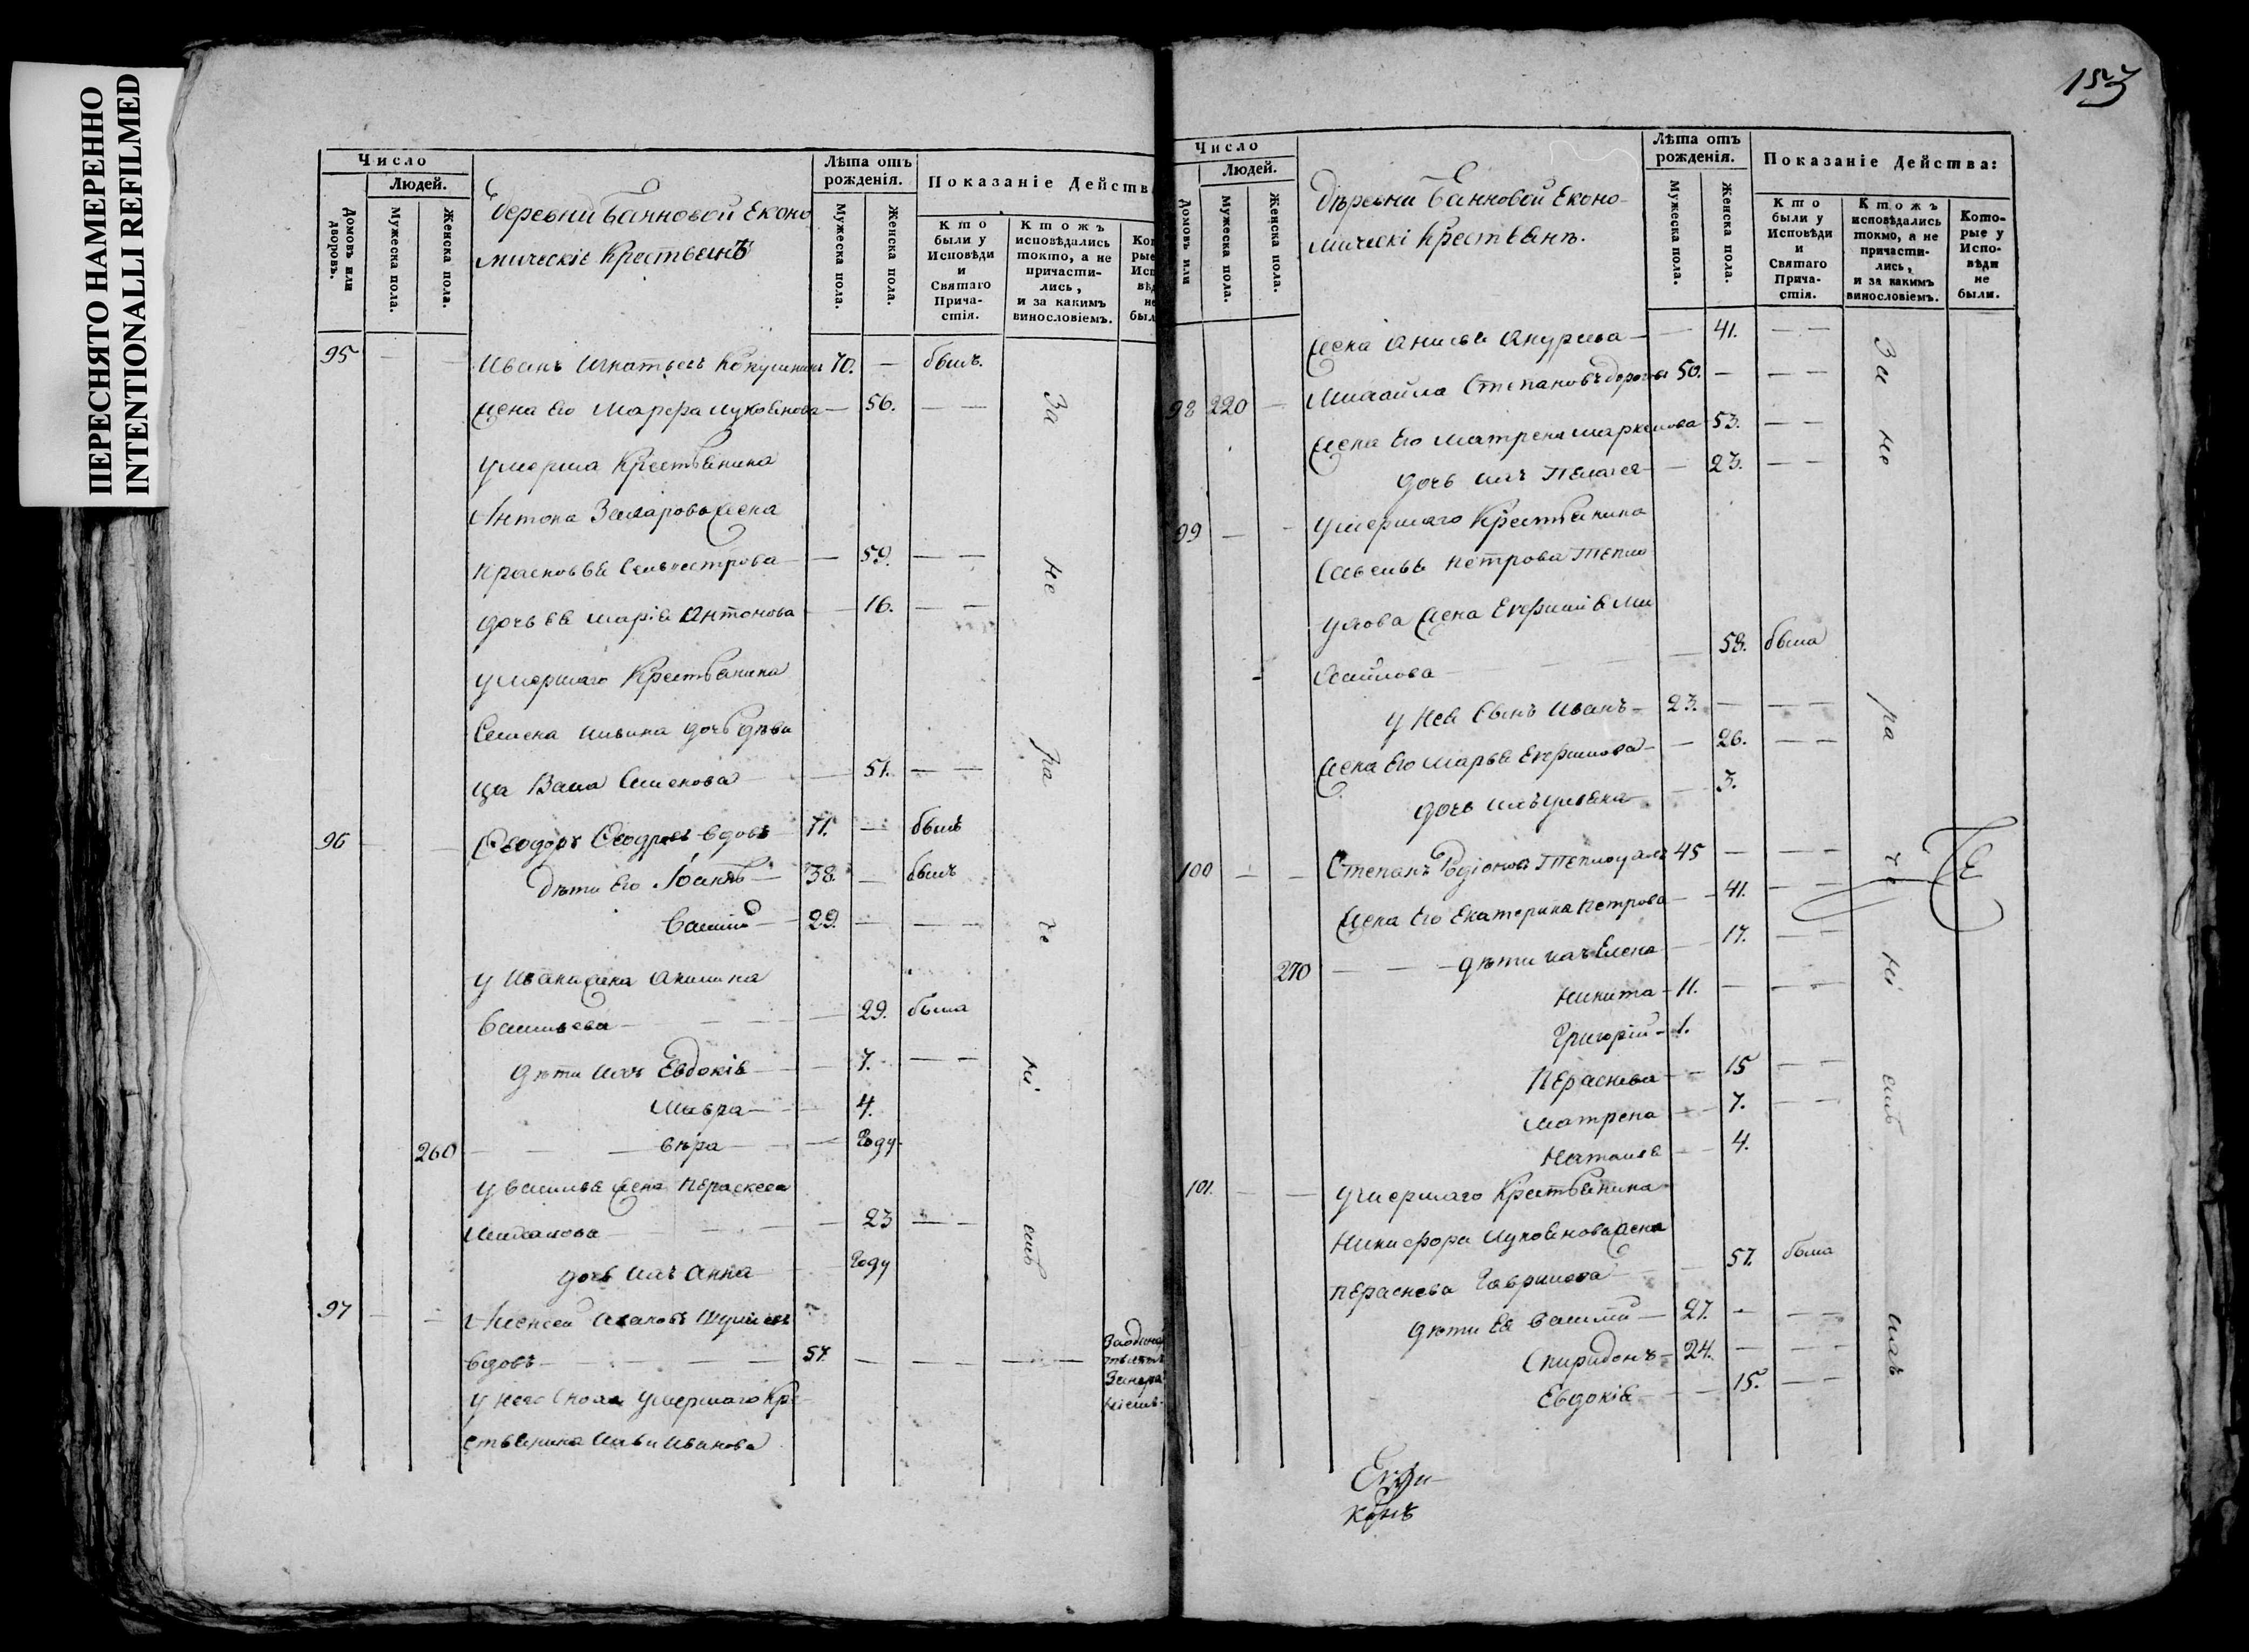 ПЕРЕСНЯТО НАМЕРЕННО
INTENTIONALLI REFILMED
Число
Людей.
Домовъ или дворовъ.
Мужеска пола.
Женска пола.
Деревни Банновой Еконо
мическіе Крестьянъ
Лѣта отъ рожденія.
Мужеска пола.
Женска пола.
Показаніе Действ
Кто были у Исповѣди и Святаго Прича-стія.
Ктожъ исповѣдались токто, а не причасти-лись, и за какимъ винословіемъ.
95 — — Иванъ Игнатьевъ 70. — былъ.
жена Его Марфа Лукоянова — 56. — —
умерша Крестьянина
Антона Захарова жена
Прасковья Селивестрова — 59. — —
дочь Ея Марія Антонова — 16. — —
умершаго Крестьянина
Семена дочь дѣви
ца Васа Семенова — 51. — —
96 — — Феодоръ Феодровъ вдовъ 71. — былъ
Дѣти Его Іоанъ — 38. — былъ
Василій — 29. — — —
у Ивана жена Акилина
Васильева — — — 29. была
дѣти ихъ Евдокія — — 7. — —
Мавра — — 4.
260 — — — Вѣра — — Году
у Василья жена Параскева
Михаилова — — — 23 — —
дочь ихъ Анна — Году
97 — — Алексей
вдовъ — — — 57. — — — — —
у него сноха умершаго Кре
стьянина Ильи Иванова
За не ра че ні емъ
153
Число
Людей.
Домовъ или
Мужеска пола.
Женска пола.
Деревни Банновой Еконо-
мическі Крестьянъ.
Лѣта отъ рожденія.
Мужеска пола.
Женска пола.
Показаніе Действа:
Кто были у Исповѣди и Святаго Прича-стія.
Ктожъ исповѣдались токмо, а не причасти-лись, и за какимъ винословіемъ.
Кото-рые у Испо-вѣди не были.
жена Анисья — — 41. — —
98 220 — Михайла Степановъ 50. — — —
жена Его Матрена Маркелова 53. — —
дочь ихъ Пелагея — — 23. — —
99 — — умершаго Крестьянина
Савелья Петрова Тепло
ухова жена Евфимія Ми
хайлова — — — — 58. была
у Нея сынъ Иванъ — 23. — — —
жена Его Марья Ефимова — — 26. — —
дочь ихъ Ульяна — — 3.
100 — — Степанъ Родіоновъ Теплоуховъ 45 — — —
жена Его Екатерина Петрова — — 41. — —
270 — — — дѣти ихъ Елена — — 17. — —
Никита — 11. — — —
Григорій — 1.
Параскева — — 15 — —
Матрена — — 7. — —
Наталья — — 4.
101. — — умершаго Крестьянина
Никифора Лукоянова жена
Параскева Гаврилова — — 57. была
дѣти Ея Василій — 27. — — —
Спиридонъ — 24. — — —
Евдокія — — 15. — —
За не ра че ні емъ